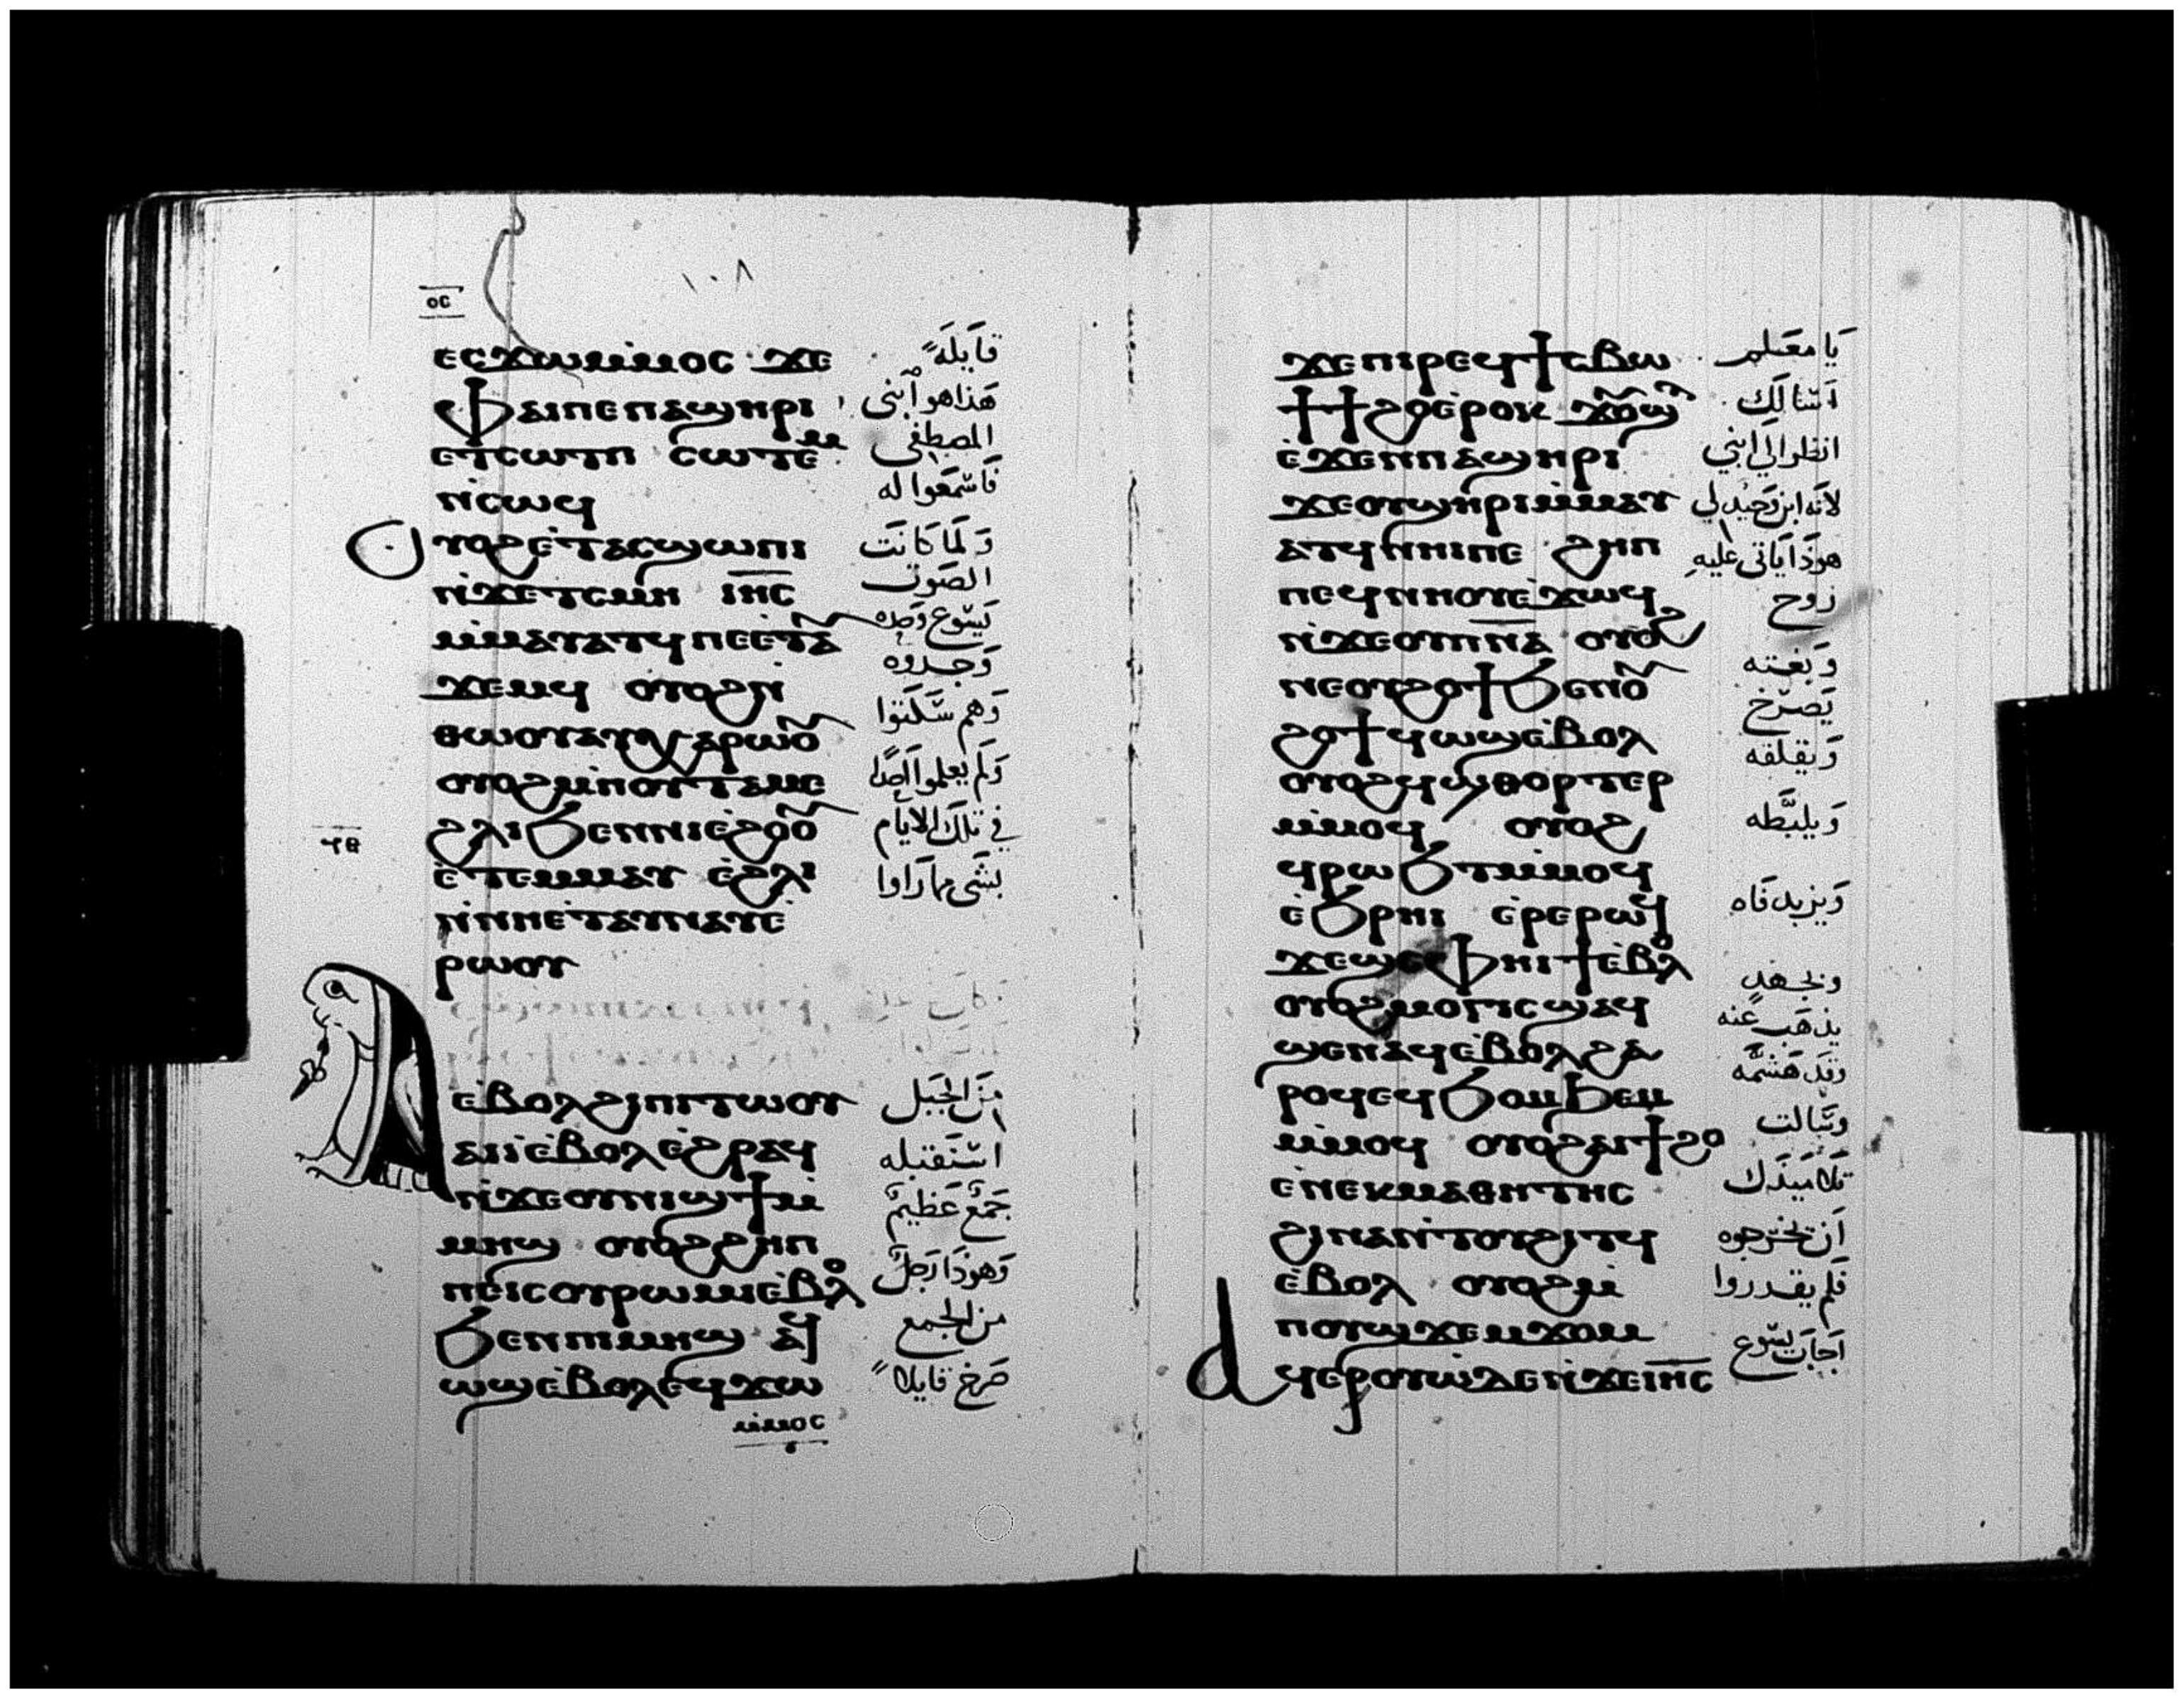 ١٠٨
ⲟⲥ
ⲉⲥϫⲱⲙ̀ⲙⲟⲥ ϫⲉ قَايلَةً
ⲫⲁⲓⲡⲉⲡⲁϣⲏⲣⲓ هَذا هو ابني
ⲉⲧⲥⲱⲧⲡ ⲥⲱⲧⲉⲙ المصطفى
ⲛ̀ⲥⲱϥ فَاسْمَعوا له
ⲟⲩⲟϩⲉ̀ⲧⲁⲥϣⲱⲡⲓ وَلَمَا كَانَت
ⲛ̀ϫⲉⲧⲥⲙⲏ ⲓⲏⲥ الصَوت
ⲙ̀ⲙⲁⲩⲁⲧϥⲡⲉⲉ̀ⲧⲁⲩ يَسُوع وَحده
ϫⲉⲙϥ ⲟⲩⲟϩⲛ̀ وَجدوه
ⲑⲱⲟⲩⲁⲩⲭⲁⲣⲱⲟⲩ وَهم سَكَتوا
ⲟⲩⲟϩⲙ̀ⲡⲟⲩⲧⲁⲙⲉ وَلَم يعلموا احدًا
ϩⲗⲓϧⲉⲛⲛⲓⲉϩⲟⲟⲩ في تلكَ الايَام
ϥⲑ
ⲉ̀ⲧⲉⲙⲙⲁⲩ ⲉ̀ϩⲗⲓ بشَي مما رَاوا
ⲛ̀ⲛⲏⲉ̀ⲧⲁⲩⲛⲁⲩⲉ̀
ⲣⲱⲟⲩ
ⲉⲃⲟⲗϩⲓⲡⲓⲧⲱⲟⲩ مِنَ الجَبَل
ⲁϥⲓ̀ⲉ̀ⲃⲟⲗⲉ̀ϩⲣⲁϥ استَقبَله
ⲛ̀ϫⲉⲟⲩⲛⲓϣϯⲙ̀ جَمعٌ عَظيمٌ
ⲙⲏϣ ⲟⲩⲟϩϩⲏⲡ
ⲡⲉⲓⲥⲟⲩⲣⲱⲙⲓⲉ̀ⲃⲟⲗ وَهوذَا رَجلٌ
ϧⲉⲛⲡⲓⲙⲏϣ ⲁϥ من الجمع
ⲱϣⲉ̀ⲃⲟⲗⲉϥϫⲱ صَرخ قايلاً
ⲙ̀ⲙⲟⲥ
ϫⲉⲡⲓⲣⲉϥϯⲥⲃⲱ يَا معَلم
ϯϯϩⲟⲉ̀ⲣⲟⲕ ϫⲟⲩϣⲧ اَسْالكَ
ⲉ̀ϫⲉⲛⲡⲁϣⲏⲣⲓ انظر الي ابني
ϫⲉⲟⲩϣⲏⲣⲓⲙ̀ⲙⲁⲩ لانَه ابن وَحيد لي
ⲁⲧϥⲛⲏⲓⲡⲉ ϩⲏⲡ هوذَا يَاتى عليهِ
ⲡⲉϥⲛⲏⲟⲩⲉ̀ϫⲱϥ روح
ⲛ̀ϫⲉⲟⲩⲡⲛⲁ ⲟⲩⲟϩ
ⲛⲉⲟⲩϩⲟϯϧⲉⲛⲟⲩ وَبغته
ϩⲟϯϥⲱϣⲉ̀ⲃⲟⲗ يَصرَخ
ⲟⲩⲟϩϥϣⲑⲟⲣⲧⲉⲣ وَيقلقه
ⲙ̀ⲙⲟϥ ⲟⲩⲟϩ وَيلبَّطه
ϥⲣⲱϧⲧⲙ̀ⲙⲟϥ
ⲉ̀ϧⲣⲏⲓ ⲉ̀ⲣⲉⲣⲱϥ وَيزبد فَاه
ϫⲉϣⲉⲫⲏⲓϯⲉ̀ⲃⲟⲗ
ⲟⲩⲟϩⲙⲟⲅⲓⲥϣⲁϥ وبجهد
ϣⲉⲛⲁϥⲉ̀ⲃⲟⲗϩⲁ يذهَب عَنه
ⲣⲟϥⲉϥϧⲟⲙϧⲉⲙ وَقَد هَشمَّه
ⲙ̀ⲙⲟϥ ⲟⲩⲟϩⲁⲓϯϩⲟ وسَالت
ⲉⲛⲉⲕⲙⲁⲑⲏⲧⲏⲥ تلاميذَك
ϩⲓⲛⲁⲛ̀ⲧⲟⲩϩⲓⲧϥ اَن يخرجوه
ⲉ̀ⲃⲟⲗ ⲟⲩⲟϩⲙ̀ فَلم يقدروا
ⲡⲟⲩϣϫⲉⲙϫⲟⲙ
ⲁϥⲉⲣⲟⲩⲱ̀ⲇⲉⲛ̀ϫⲉⲓⲏⲥ اَجَابَ يسُوع